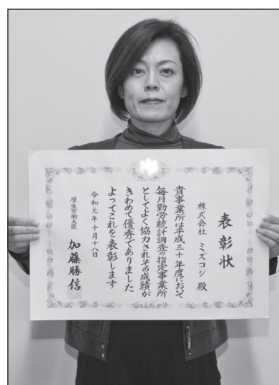 表彰状
株式会社 ミズコシ 殿
貴事業所は平成三十年度において
毎月勤労統計調査の指定事業所
としてよく協力されその成績が
きわめて優秀でありました
よってこれを表彰します
令和元年十月十八日
厚生労働大臣 加藤勝信